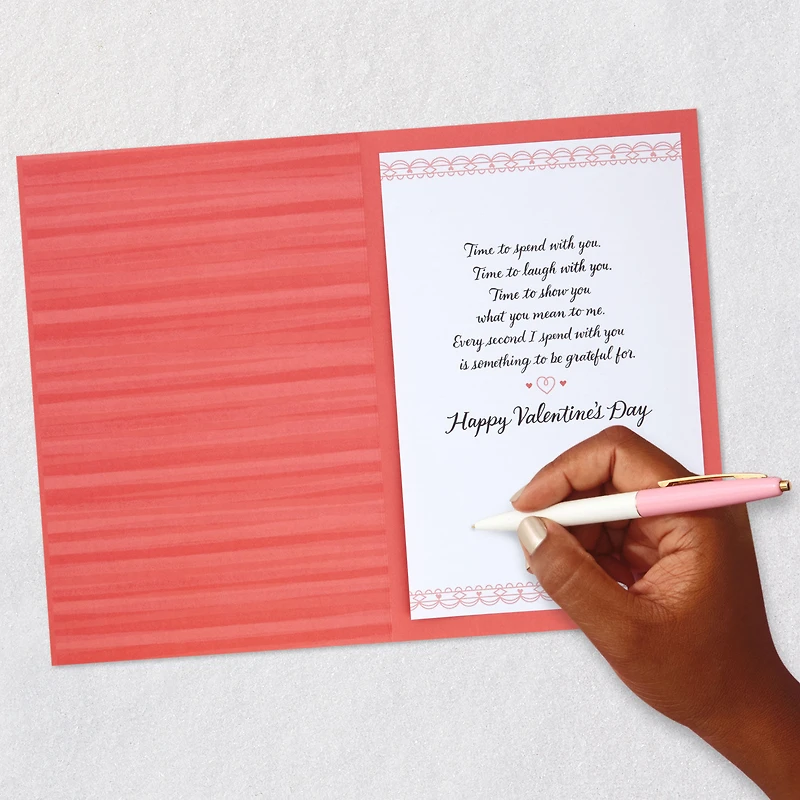 Time to spend with you.
Time to laugh with you.
Time to show you
what you mean to me.
Every second I spend with you
is something to be grateful for.
Happy Valentine's Day